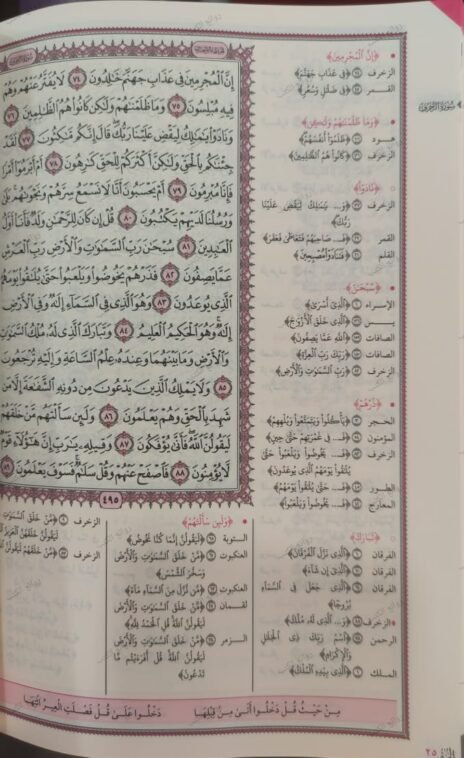 سُورَةُ الزُّخْرُفِ
إِنَّ ٱلْمُجْرِمِينَ فِى عَذَابِ جَهَنَّمَ خَٰلِدُونَ ٧٤ لَا يُفَتَّرُ عَنْهُمْ وَهُمْ
فِيهِ مُبْلِسُونَ ٧٥ وَمَا ظَلَمْنَٰهُمْ وَلَٰكِن كَانُوا۟ هُمُ ٱلظَّٰلِمِينَ ٧٦
وَنَادَوْا۟ يَٰمَٰلِكُ لِيَقْضِ عَلَيْنَا رَبُّكَ قَالَ إِنَّكُم مَّٰكِثُونَ ٧٧ لَقَدْ
جِئْنَٰكُم بِٱلْحَقِّ وَلَٰكِنَّ أَكْثَرَكُمْ لِلْحَقِّ كَٰرِهُونَ ٧٨ أَمْ أَبْرَمُوٓا۟ أَمْرًا
فَإِنَّا مُبْرِمُونَ ٧٩ أَمْ يَحْسَبُونَ أَنَّا لَا نَسْمَعُ سِرَّهُمْ وَنَجْوَىٰهُم بَلَىٰ
وَرُسُلُنَا لَدَيْهِمْ يَكْتُبُونَ ٨٠ قُلْ إِن كَانَ لِلرَّحْمَٰنِ وَلَدٌ فَأَنَا۠ أَوَّلُ
ٱلْعَٰبِدِينَ ٨١ سُبْحَٰنَ رَبِّ ٱلسَّمَٰوَٰتِ وَٱلْأَرْضِ رَبِّ ٱلْعَرْشِ
عَمَّا يَصِفُونَ ٨٢ فَذَرْهُمْ يَخُوضُوا۟ وَيَلْعَبُوا۟ حَتَّىٰ يُلَٰقُوا۟ يَوْمَهُمُ
ٱلَّذِى يُوعَدُونَ ٨٣ وَهُوَ ٱلَّذِى فِى ٱلسَّمَآءِ إِلَٰهٌ وَفِى ٱلْأَرْضِ
إِلَٰهٌ وَهُوَ ٱلْحَكِيمُ ٱلْعَلِيمُ ٨٤ وَتَبَارَكَ ٱلَّذِى لَهُۥ مُلْكُ ٱلسَّمَٰوَٰتِ
وَٱلْأَرْضِ وَمَا بَيْنَهُمَا وَعِندَهُۥ عِلْمُ ٱلسَّاعَةِ وَإِلَيْهِ تُرْجَعُونَ
٨٥ وَلَا يَمْلِكُ ٱلَّذِينَ يَدْعُونَ مِن دُونِهِ ٱلشَّفَٰعَةَ إِلَّا مَن
شَهِدَ بِٱلْحَقِّ وَهُمْ يَعْلَمُونَ ٨٦ وَلَئِن سَأَلْتَهُم مَّنْ خَلَقَهُمْ
لَيَقُولُنَّ ٱللَّهُ فَأَنَّىٰ يُؤْفَكُونَ ٨٧ وَقِيلِهِۦ يَٰرَبِّ إِنَّ هَٰٓؤُلَآءِ قَوْمٌ
لَّا يُؤْمِنُونَ ٨٨ فَٱصْفَحْ عَنْهُمْ وَقُلْ سَلَٰمٌ فَسَوْفَ يَعْلَمُونَ ٨٩
٤٩٥
﴿إِنَّ ٱلْمُجْرِمِينَ﴾
الزخرف ﴿فِى عَذَابِ جَهَنَّمَ﴾
القمر ﴿فِى ضَلَٰلٍ وَسُعُرٍ﴾
﴿وَمَا ظَلَمْنَٰهُمْ وَلَٰكِن﴾
هود ﴿ظَلَمُوٓا۟ أَنفُسَهُمْ﴾
الزخرف ﴿كَانُوا۟ هُمُ ٱلظَّٰلِمِينَ﴾
﴿نَادَوْا۟﴾
الزخرف ﴿وَ... يَٰمَٰلِكُ لِيَقْضِ عَلَيْنَا
رَبُّكَ﴾
القمر ﴿فَـ... صَاحِبَهُمْ فَتَعَاطَىٰ فَعَقَرَ﴾
القلم ﴿فَتَنَادَوْا۟ مُصْبِحِينَ﴾
﴿سُبْحَٰنَ﴾
الإسراء ﴿ٱلَّذِىٓ أَسْرَىٰ﴾
يس ﴿ٱلَّذِى خَلَقَ ٱلْأَزْوَٰجَ﴾
الصافات ﴿ٱللَّهِ عَمَّا يَصِفُونَ﴾
الصافات ﴿رَبِّكَ رَبِّ ٱلْعِزَّةِ﴾
الزخرف ﴿رَبِّ ٱلسَّمَٰوَٰتِ وَٱلْأَرْضِ﴾
﴿ذَرْهُمْ﴾
الحجر ﴿يَأْكُلُوا۟ وَيَتَمَتَّعُوا۟ وَيُلْهِهِمُ﴾
المؤمنون ﴿فَـ... فِى غَمْرَتِهِمْ حَتَّىٰ حِينٍ﴾
الزخرف ﴿فَـ... يَخُوضُوا۟ وَيَلْعَبُوا۟ حَتَّىٰ
يُلَٰقُوا۟ يَوْمَهُمُ ٱلَّذِى يُوعَدُونَ﴾
الطور ﴿فَـ... حَتَّىٰ يُلَٰقُوا۟ يَوْمَهُمُ﴾
المعارج ﴿فَـ... يَخُوضُوا۟ وَيَلْعَبُوا۟﴾
﴿تَبَارَكَ﴾
الفرقان ﴿ٱلَّذِى نَزَّلَ ٱلْفُرْقَانَ﴾
الفرقان ﴿ٱلَّذِىٓ إِن شَآءَ﴾
الفرقان ﴿ٱلَّذِى جَعَلَ فِى ٱلسَّمَآءِ
بُرُوجًا﴾
الزخرف ﴿وَ... ٱلَّذِى لَهُۥ مُلْكُ﴾
الرحمن ﴿ٱسْمُ رَبِّكَ ذِى ٱلْجَلَٰلِ
وَٱلْإِكْرَامِ﴾
الملك ﴿ٱلَّذِى بِيَدِهِ ٱلْمُلْكُ﴾
﴿وَلَئِن سَأَلْتَهُمْ﴾
التوبة ﴿لَيَقُولُنَّ إِنَّمَا كُنَّا نَخُوضُ﴾
العنكبوت ﴿مَّنْ خَلَقَ ٱلسَّمَٰوَٰتِ وَٱلْأَرْضَ
وَسَخَّرَ ٱلشَّمْسَ﴾
العنكبوت ﴿مَّن نَّزَّلَ مِنَ ٱلسَّمَآءِ مَآءً﴾
لقمان ﴿مَّنْ خَلَقَ ٱلسَّمَٰوَٰتِ وَٱلْأَرْضَ
لَيَقُولُنَّ ٱللَّهُ قُلِ ٱلْحَمْدُ لِلَّهِ﴾
الزمر ﴿مَّنْ خَلَقَ ٱلسَّمَٰوَٰتِ وَٱلْأَرْضَ
لَيَقُولُنَّ ٱللَّهُ قُلْ أَفَرَءَيْتُم مَّا
تَدْعُونَ﴾
الزخرف ﴿مَّنْ خَلَقَ ٱلسَّمَٰوَٰتِ
لَيَقُولُنَّ خَلَقَهُنَّ ٱلْعَزِيزُ
الزخرف ﴿مَّنْ خَلَقَهُمْ لَيَقُولُنَّ ٱللَّهُ
مِنْ حَيْثُ قُلْ دَخَلُوا أَتَى مِنْ قَبْلِهَا دَخَلُوا عَلَىٰ قُلْ فَصَلَتِ الْعِيرُ
٢٥